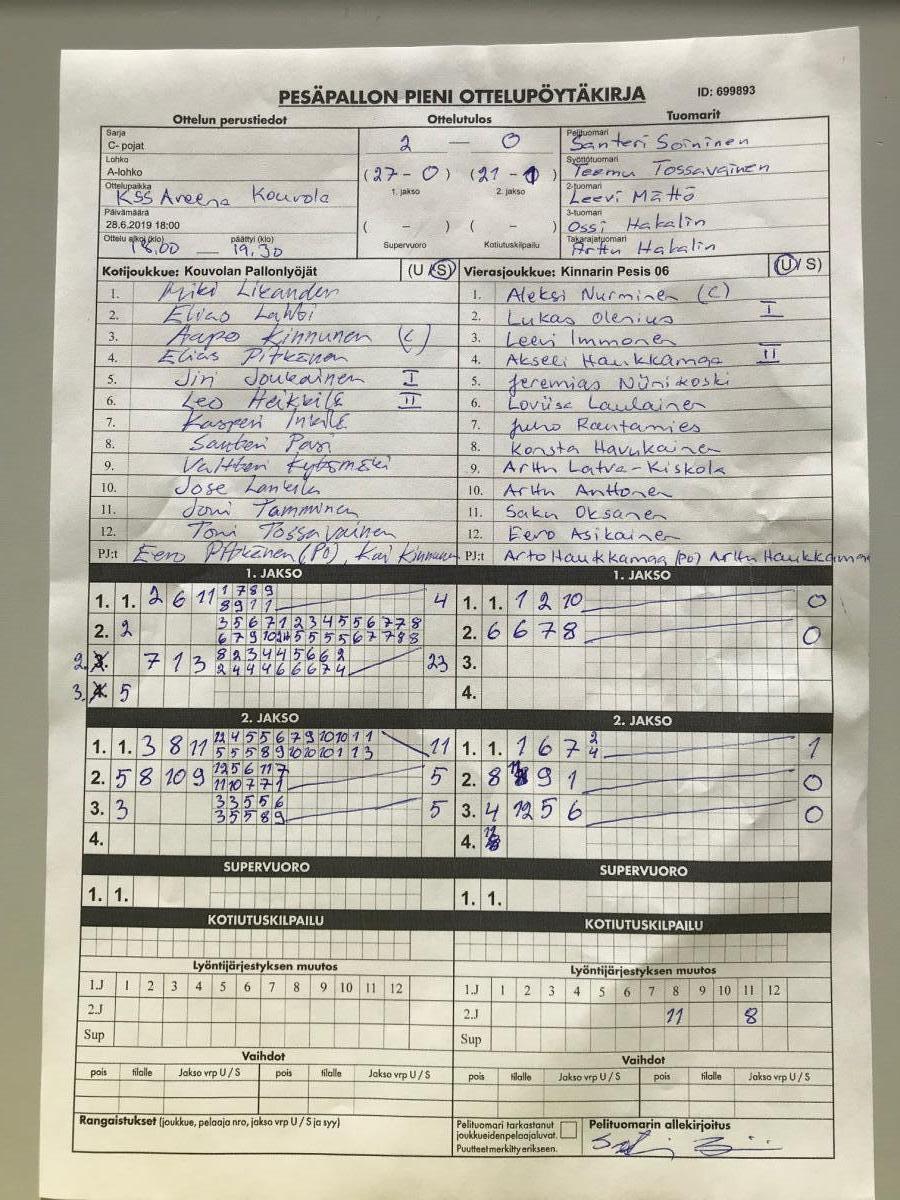 PESÄPALLON PIENI OTTELUPÖYTÄKIRJA ID: 699893
Ottelun perustiedot Ottelutulos Tuomarit
Sarja
C- pojat
Lohko
A-lohko
Ottelupaikka
KSS Areena Kouvola
Päivämäärä
28.6.2019 18:00
Ottelu alkoi (klo) päättyi (klo)
18.00 — 19.30
2 — 0
(27 - 0) (21 - 1)
1. jakso 2. jakso
( - ) ( - )
Supervuoro Kotiutuskilpailu
Pelituomari
Santeri Soininen
Syöttötuomari
Teemu Tossavainen
2-tuomari
Leevi Mättö
3-tuomari
Ossi Hakalin
Takarajatuomari
Arttu Hakalin
Kotijoukkue: Kouvolan Pallonlyöjät (U / S)
1. Miki Likander
2. Elias Lahti
3. Aapo Kinnunen (C)
4. Elias Pitkänen
5. Jiri Joukainen I
6. Leo Heikkilä II
7. Kasperi Inkilä
8. Santeri Pasi
9. Valtteri Kytömäki
10. Jose Lankila
11. Joni Tamminen
12. Toni Tossavainen
PJ:t Eero Pitkänen (PO), Kai Kinnunen
Vierasjoukkue: Kinnarin Pesis 06 (U / S)
1. Aleksi Nurminen (C)
2. Lukas Olenius I
3. Leevi Immonen
4. Akseli Haukkamaa II
5. Jeremias Niinikoski
6. Loviisa Laulainen
7. Juho Rantamies
8. Konsta Havukainen
9. Arttu Latva-Kiskola
10. Arttu Anttonen
11. Saku Oksanen
12. Eero Asikainen
PJ:t Arto Haukkamaa (PO) Arttu Haukkamaa
1. JAKSO
1. 1. 2 6 11 1 7 8 9 4
8 9 1 1
2. 2 3 5 6 7 1 2 3 4 5 5 6 7 7 8
2. 3. 7 1 3 8 2 3 4 4 5 6 6 2 23
2 4 4 4 6 6 6 7 4
3. 4. 5
1. JAKSO
1. 1. 1 2 10 0
2. 6 6 7 8 0
3.
4.
2. JAKSO
1. 1. 3 8 11 12 4 5 5 6 7 9 10 10 1 1 11
5 5 5 8 9 10 10 10 1 1 3
2. 5 8 10 9 12 5 6 11 7 5
11 10 7 7 1
3. 3 3 3 5 5 6 5
3 5 5 8 9
4.
2. JAKSO
1. 1. 1 6 7 2 1
4
2. 8 11 9 1 0
3. 4 12 5 6 0
4. 12
SUPERVUORO
1. 1.
SUPERVUORO
1. 1.
KOTIUTUSKILPAILU
KOTIUTUSKILPAILU
Lyöntijärjestyksen muutos
1.J 1 2 3 4 5 6 7 8 9 10 11 12
2.J
Sup
Lyöntijärjestyksen muutos
1.J 1 2 3 4 5 6 7 8 9 10 11 12
2.J 11 8
Sup
Vaihdot
pois tilalle Jakso vrp U / S pois tilalle Jakso vrp U / S
Vaihdot
pois tilalle Jakso vrp U / S pois tilalle Jakso vrp U / S
Rangaistukset (joukkue, pelaaja nro, jakso vrp U / S ja syy)
Pelituomari tarkastanut
joukkueiden pelaajaluvat.
Puutteet merkitty erikseen.
Pelituomarin allekirjoitus